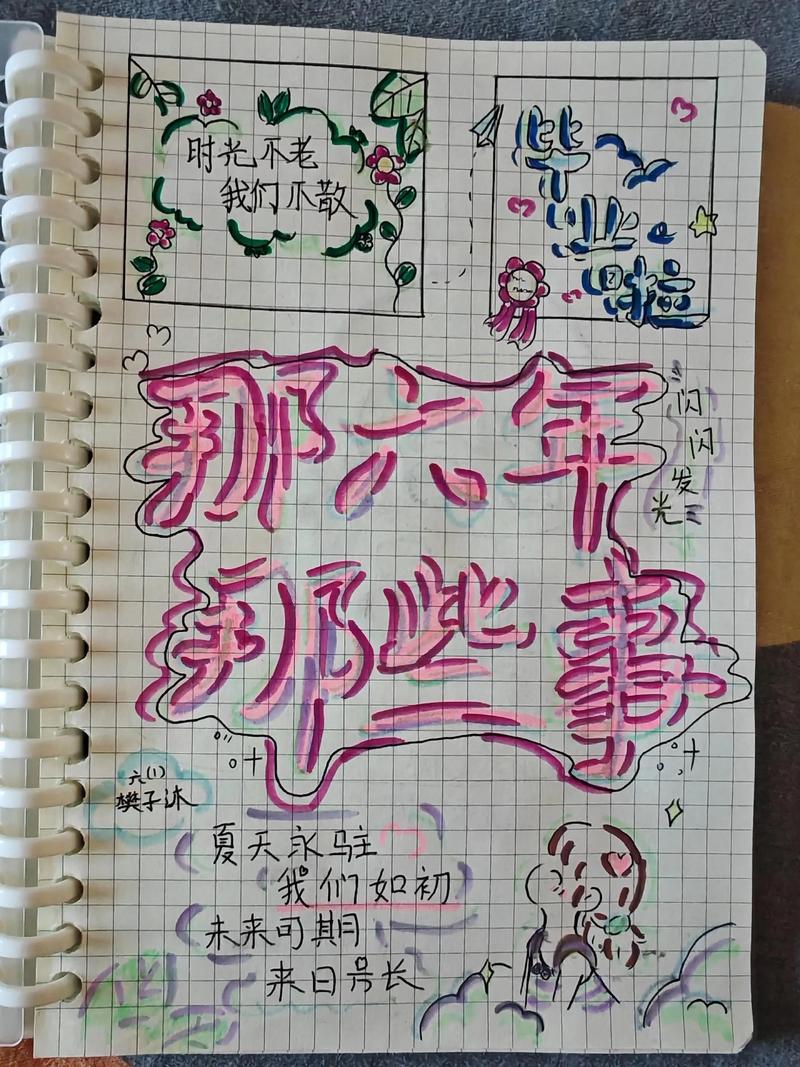 时光不老
我们不散
毕
业
快
那六年
那些事
闪
闪
发
光
六(1)
樊子沐
夏天永驻
我们如初
未来可期
来日方长